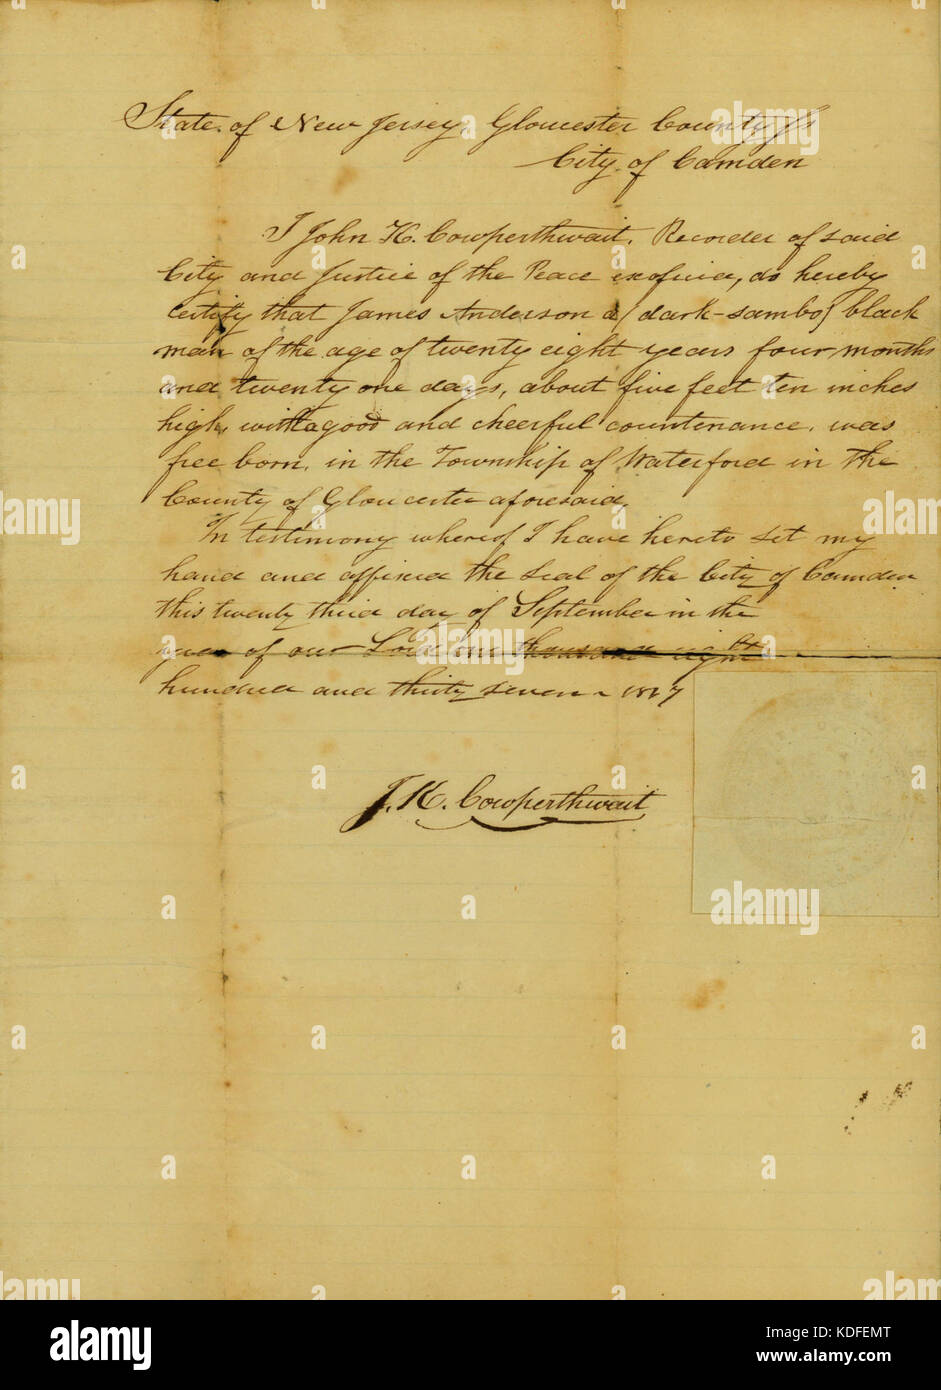 State of New Jersey, Gloucester County ss
City of Camden
I John K. Cowperthwait, Recorder of said
City and Justice of the Peace exoficia, do hereby
certify that James Anderson a (dark-sambo) black
man of the age of twenty eight years four months
and twenty one days, about five feet ten inches
high, with a good and cheerful countenance, was
free born, in the Township of Waterford in the
County of Gloucester aforesaid,
In testimony whereof I have hereto set my
hand and affixed the seal of the City of Camden
this twenty third day of September in the
year of our Lord one thousand eight
hundred and thirty seven 1837
J. K. Cowperthwait
alamy
a
alamy stock photo
KDFEMT
www.alamy.com